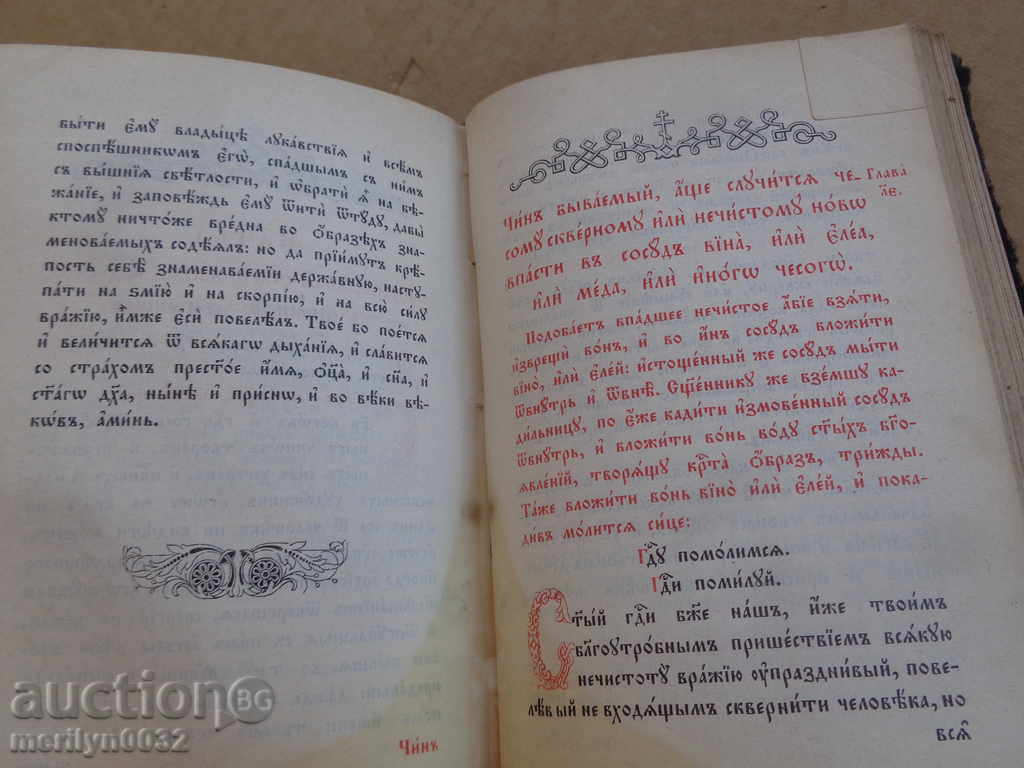 бы́ти є҆мꙋ̀ влады́цѣ лꙋка́вствїѧ и҆ всѣ̑мъ
споспѣ́шникѡмъ є҆гѡ̀, спа́дшымъ съ ни́мъ
съ вы́шнїѧ свѣ́тлости, и҆ ѡ҆братѝ ѧ҆̀ на бѣ-
жа́нїе, и҆ заповѣ́ждь є҆мꙋ̀ ѿитѝ ѿтꙋ́дꙋ, дабы̀
ктомꙋ̀ ничто́же вре́дна во ѻ҆́бразѣхъ зна-
меновáемыхъ содѣ́ѧлъ: но да прїи́мꙋтъ крѣ́-
пость себѣ̀ зна́менаваемїи держа́внꙋю, настꙋ-
па́ти на ѕмїю̀ и҆ на скорпі́ю, и҆ на всю̀ си́лꙋ
вра́жїю, и҆́мже є҆сѝ повелѣ́лъ. Твоѐ бо пое́тсѧ
и҆ вели́читсѧ ѿ всѧ́кагѡ дыха́нїѧ, и҆ сла́витсѧ
со стра́хомъ прест҃о́е и҆́мѧ, ѻ҆ц҃а̀, и҆ сн҃а, и҆
ст҃а́гѡ дх҃а, ны́нѣ и҆ при́снѡ, и҆ во вѣ́ки вѣ-
кѡ́въ, а҆ми́нь.
Чи́нъ
Чи́нъ быва́емый, а҆́ще слꙋчи́тсѧ че-
сомꙋ̀ скве́рномꙋ и҆лѝ нечи́стомꙋ но́вѡ
впа́сти въ сосꙋ́дъ вїна̀, и҆лѝ є҆ле́а,
и҆лѝ ме́да, и҆лѝ и҆но́гѡ чесогѡ̀.
Глава̀
л҃е.
Подоба́етъ впа́дшее нечи́стое а҆́бїе взѧ́ти,
и҆зврещѝ во́нъ, и҆ во и҆́нъ сосꙋ́дъ вложи́ти
вїно̀, и҆лѝ є҆ле́й: и҆стоще́нный же сосꙋ́дъ мы́ти
ѿвнꙋ́трь и҆ ѿвнѣ̀. Сщ҃е́нникꙋ же взе́мшꙋ
кади́льницꙋ, по є҆́же кади́ти и҆змове́нный сосꙋ́дъ
ѿвнꙋ́трь, и҆ вложи́ти во́нь во́дꙋ ст҃ы́хъ бг҃о-
ѧвле́нїй, творѧ́щꙋ крⷭ҇та̀ ѻ҆́бразъ, три́жды.
Та́же вложи́ти во́нь вїно̀ и҆лѝ є҆ле́й, и҆ пока-
ди́въ мо́литсѧ си́це:
Гдⷭ҇ꙋ помо́лимсѧ.
Гдⷭ҇и поми́лꙋй.
Ст҃ы́й гдⷭ҇и бж҃е на́шъ, и҆́же твои́мъ
бл҃гоꙋтро́бнымъ прише́ствїемъ всѧ́кꙋю
нечистотꙋ̀ вра́жїю ᲂу҆праздни́вый, пове-
лѣ́вый не входѧ́щымъ скверни́ти человѣ́ка, но
всѧ̑
auctionBG
merilyn0032